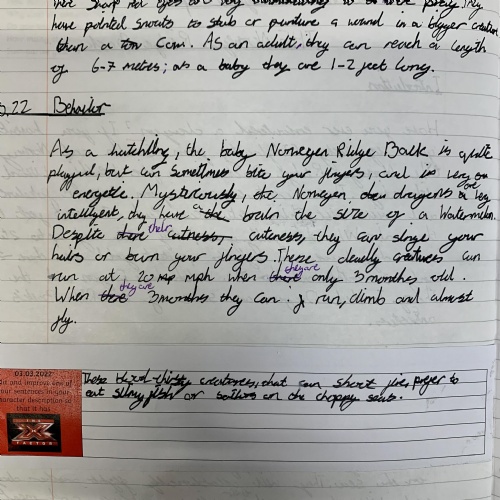 have pointed snouts to stab or puncture a wound in a bigger creature
than a tom Cam. As an adult, they can reach a length
of 6-7 metres; as a baby they are 1-2 feet long.
Behavior
As a hatchling, the baby Norwegen Ridge Back is quite
playful, but can sometimes bite your fingers, and is very
energetic. Mysteriously, the Norwegen dragons are very
intelligent, they have the brain the size of a Watermelon.
Despite there their cutness, cuteness, they can singe your
hairs or burn your fingers. These deadly creatures can
run at 20 mp mph when there they are only 3 months old.
When there they are 3 months they can. run, climb and almost
fly.
03.03.2022
These blood-thirsty creatures, that can shoot fire, prefer to
eat slimy fish or sailors on the choppy seas.
and improve one of
your sentences in your
character description so
that it has
THE
X
FACTOR